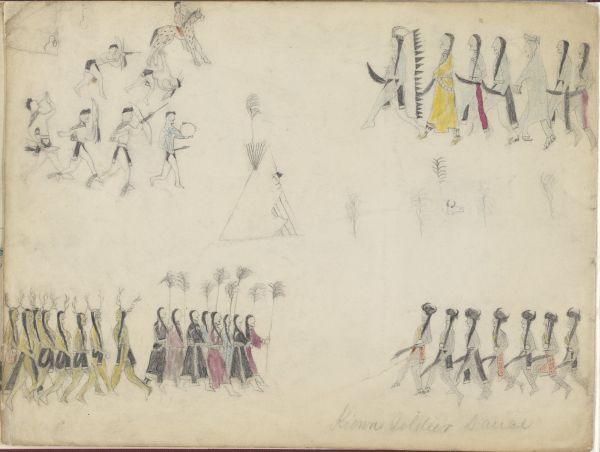 Kiowa Soldier Dance